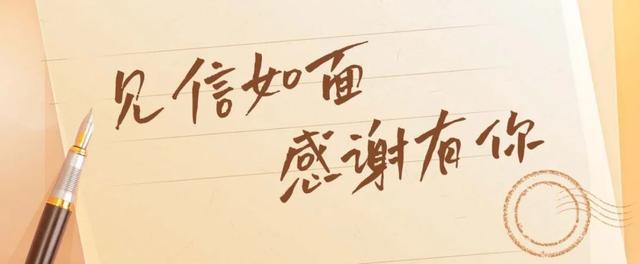 见信如面
感谢有你